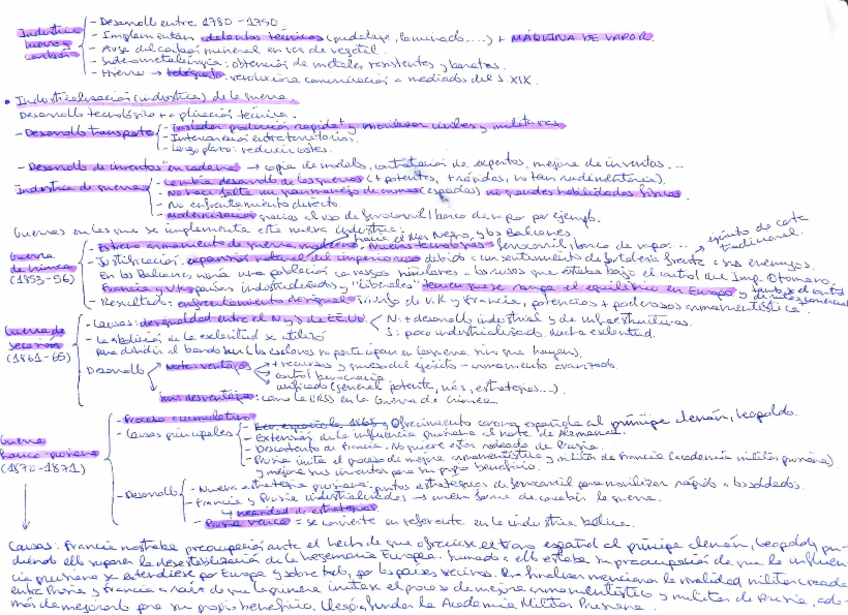 - Desarrollo entre 1780-1790.
Industria hierro y carbón
- Implementan adelantos técnicos (pudelaje, laminado, ...) + MÁQUINA DE VAPOR.
- Auge del carbón mineral en vez de vegetal.
- Siderometalurgia: obtención de metales resistentes y baratos.
- Hierro → telégrafo: revoluciona comunicación a mediados del s. XIX.
• Industrialización (industria) de la guerra.
Desarrollo tecnológico + aplicación técnica.
- Desarrollo transporte
- Trasladar producción rápida y movilizar civiles y militares
- Interconexión entre territorios.
- Largo plazo: reducir costes.
- Desarrollo de inventos "en cadena" → copia de modelos, contratación de expertos, mejora de inventos...
Industria de guerra
- Cambia desarrollo de las guerras (+ potentes, + rápidas, no tan rudimentarias).
- No hace falta un gran manejo de armas (espadas) ni grandes habilidades físicas.
- No enfrentamiento directo.
- Modernización gracias al uso de ferrocarril/barco de vapor por ejemplo.
Guerras en las que se implementa esta nueva industria:
hacia el Mar Negro, y los Balcanes
ejército de corte tradicional.
Guerra de Crimea (1853-56)
- Estreno armamento de guerra moderno, nuevas tecnologías: ferrocarril, barco de vapor...
- Justificación: expansión natural del imperio ruso debido a un sentimiento de fortaleza frente a sus enemigos.
En los Balcanes había una población con rasgos similares a los rusos que estaba bajo el control del Imp. Otomano.
Francia y UK países industrializados y "liberales" temen que se rompa el equilibrio en Europa y
- Resultado: enfrentamiento desigual. Triunfo de U.K y Francia, potencias + poderosas armamentística.
Guerra de secesión (1861-65)
- Causas: desigualdad entre el N y S de EE.UU.
N: + desarrollo industrial y de infraestructuras.
S: poco industrializado. Mucha esclavitud.
- La abolición de la esclavitud se utilizó
para debilitar al bando sur (los esclavos no participan en la guerra sino que huyen).
Desarrollo
Norte ventajas
+ recursos y grueso del ejército - armamento avanzado.
control
unificado (general potente, más, estrategias...).
Sur desventajas: como la URSS en la Guerra de Crimea
Guerra franco-prusiana (1870-1871)
- Proceso acumulativo
- Causas principales
- Rev. española 1868 y Ofrecimiento corona española al príncipe alemán, Leopoldo.
- Extensión de la influencia prusiana al norte de Alemania.
- Descontento de Francia. No quiere estar rodeada de Prusia.
- Prusia imita el proceso de mejora armamentística y militar de Francia (academia militar prusiana)
y mejora sus inventos para su propio beneficio.
- Desarrollo
- Nueva estrategia prusiana: puntos estratégicos de ferrocarril para movilizar rápido a los soldados.
- Francia y Prusia industrializados → nueva forma de concebir la guerra.
↳ necesidad de estrategias
- Prusia vence = se convierte en referente en la industria bélica.
Causas: Francia mostraba preocupación ante el hecho de que ofreciese el trono español al príncipe alemán, Leopoldo, pu-
diendo ello suponer la desestabilización de la hegemonía Europea. Sumado a ello estaba su preocupación de que la influen-
cia prusiana se extendiese por Europa y sobre todo, por los países vecinos. Para finalizar mencionar la rivalidad militar creada
entre Prusia y Francia a raíz de que la primera imitase el proceso de mejora armamentístico y militar de Prusia, ade-
más de mejorarlo para su propio beneficio. Llegó a fundar la Academia Militar Prusiana.